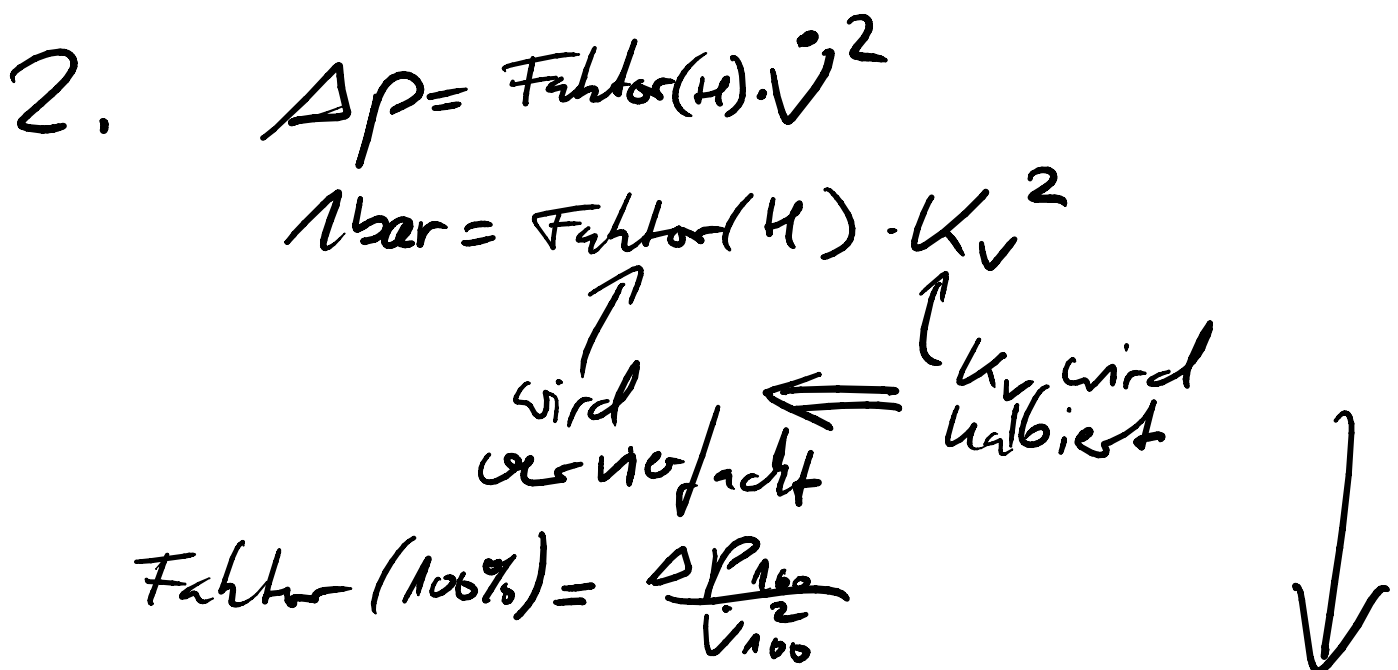 2. Δp = Faktor(H) · V̇²
1 bar = Faktor(H) · Kv²
wird
vervierfacht
Kv wird
halbiert
Faktor (100%) = Δp₁₀₀ / V̇₁₀₀²